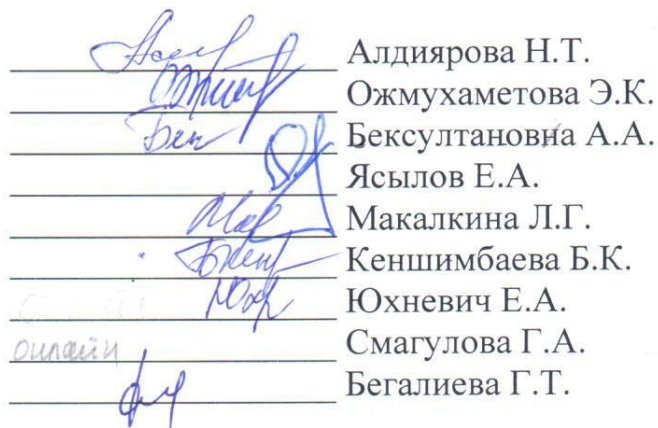 Алдиярова Н.Т.
Ожмухаметова Э.К.
Бексултановна А.А.
Ясылов Е.А.
Макалкина Л.Г.
Кеншимбаева Б.К.
Юхневич Е.А.
онлайн Смагулова Г.А.
Бегалиева Г.Т.